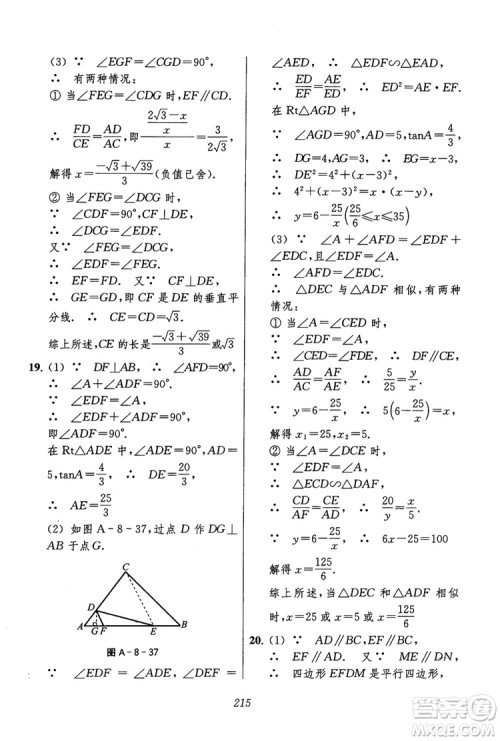 (3) ∵ ∠EGF=∠CGD=90°,
∴ 有两种情况:
① 当∠FEG=∠CDG 时,EF∥CD.
∴ FD/CE=AD/AC, ∴ (2√3-x)/x=x/(2√3).
解得 x=(-√3+√39)/3(负值已舍)
② 当∠FEG=∠DCG 时,
∵ ∠CDF=90°,
∴ ∠EDF=∠DCG.
又∵ ∠FEG=∠DCG,
∴ ∠EDF=∠FEG.
∴ EF=FD. 又∵ FC⊥DE,
∴ GE=GD,即 CF 是 DE 的垂直平
分线. ∴ CE=CD=√3.
综上所述,CE 的长是(-√3+√39)/3或√3.
19. (1) ∵ DF⊥AB, ∴ ∠AFD=90°.
∴ ∠A+∠ADF=90°.
∵ ∠EDF=∠A, ∴ ∠EDF+∠ADF=90°,
即∠ADE=90°.
在 Rt△ADE 中, ∵ ∠ADE=90°,AD=
5,tanA=4/3, ∴ DE=20/3.
∴ AE=25/3
(2) 如图 A-8-37,过点 D 作 DG⊥
AB 于点 G.
C
D
A
G F
E
B
图 A-8-37
∵ ∠EDF=∠A,∠DEF=
∠AED, ∴ △EDF∽△EAD,
∴ ED/EF=AE/ED. ∴ ED²=AE·EF.
在 Rt△AGD 中,
∵ ∠AGD=90°,AD=5,tanA=4/3,
∴ DG=4,AG=3. ∴ EG=x-3.
∴ DE²=4²+(x-3)².
∴ 4²+(x-3)²=x·(x-y).
∴ y=6-25/x(25/6≤x≤35)
(3) ∵ ∠A+∠AFD=∠EDF+
∠EDC,且∠EDF=∠A,
∴ ∠AFD=∠EDC.
∴ △DEC 与△ADF 相似,有两种
情况:
① 当∠A=∠CED 时,
∵ ∠EDF=∠A,又∵ ∠CED=∠A,
∴ ∠EDF=∠CED. ∴ DF∥CE.
∴ AD/AC=AF/AE. ∴ 5/25=y/x.
∵ y=6-25/x, ∴ 5(6-25/x)=x.
解得 x₁=25,x₂=5.
② 当∠A=∠DCE 时,
∵ ∠EDF=∠A,
∴ △ECD∽△DAF.
∴ CD/AF=CE/AD. ∴ 20/y=x/5.
∵ y=6-25/x, ∴ 6x-25=100
解得 x=125/6.
综上所述,当△DEC 和△ADF 相似时,
x=25 或 x=5 或 x=125/6.
20. (1) ∵ AD∥BC,EF∥BC,
∴ EF∥AD. 又∵ ME∥DF,
∴ 四边形 EFDM 是平行四边形,
215